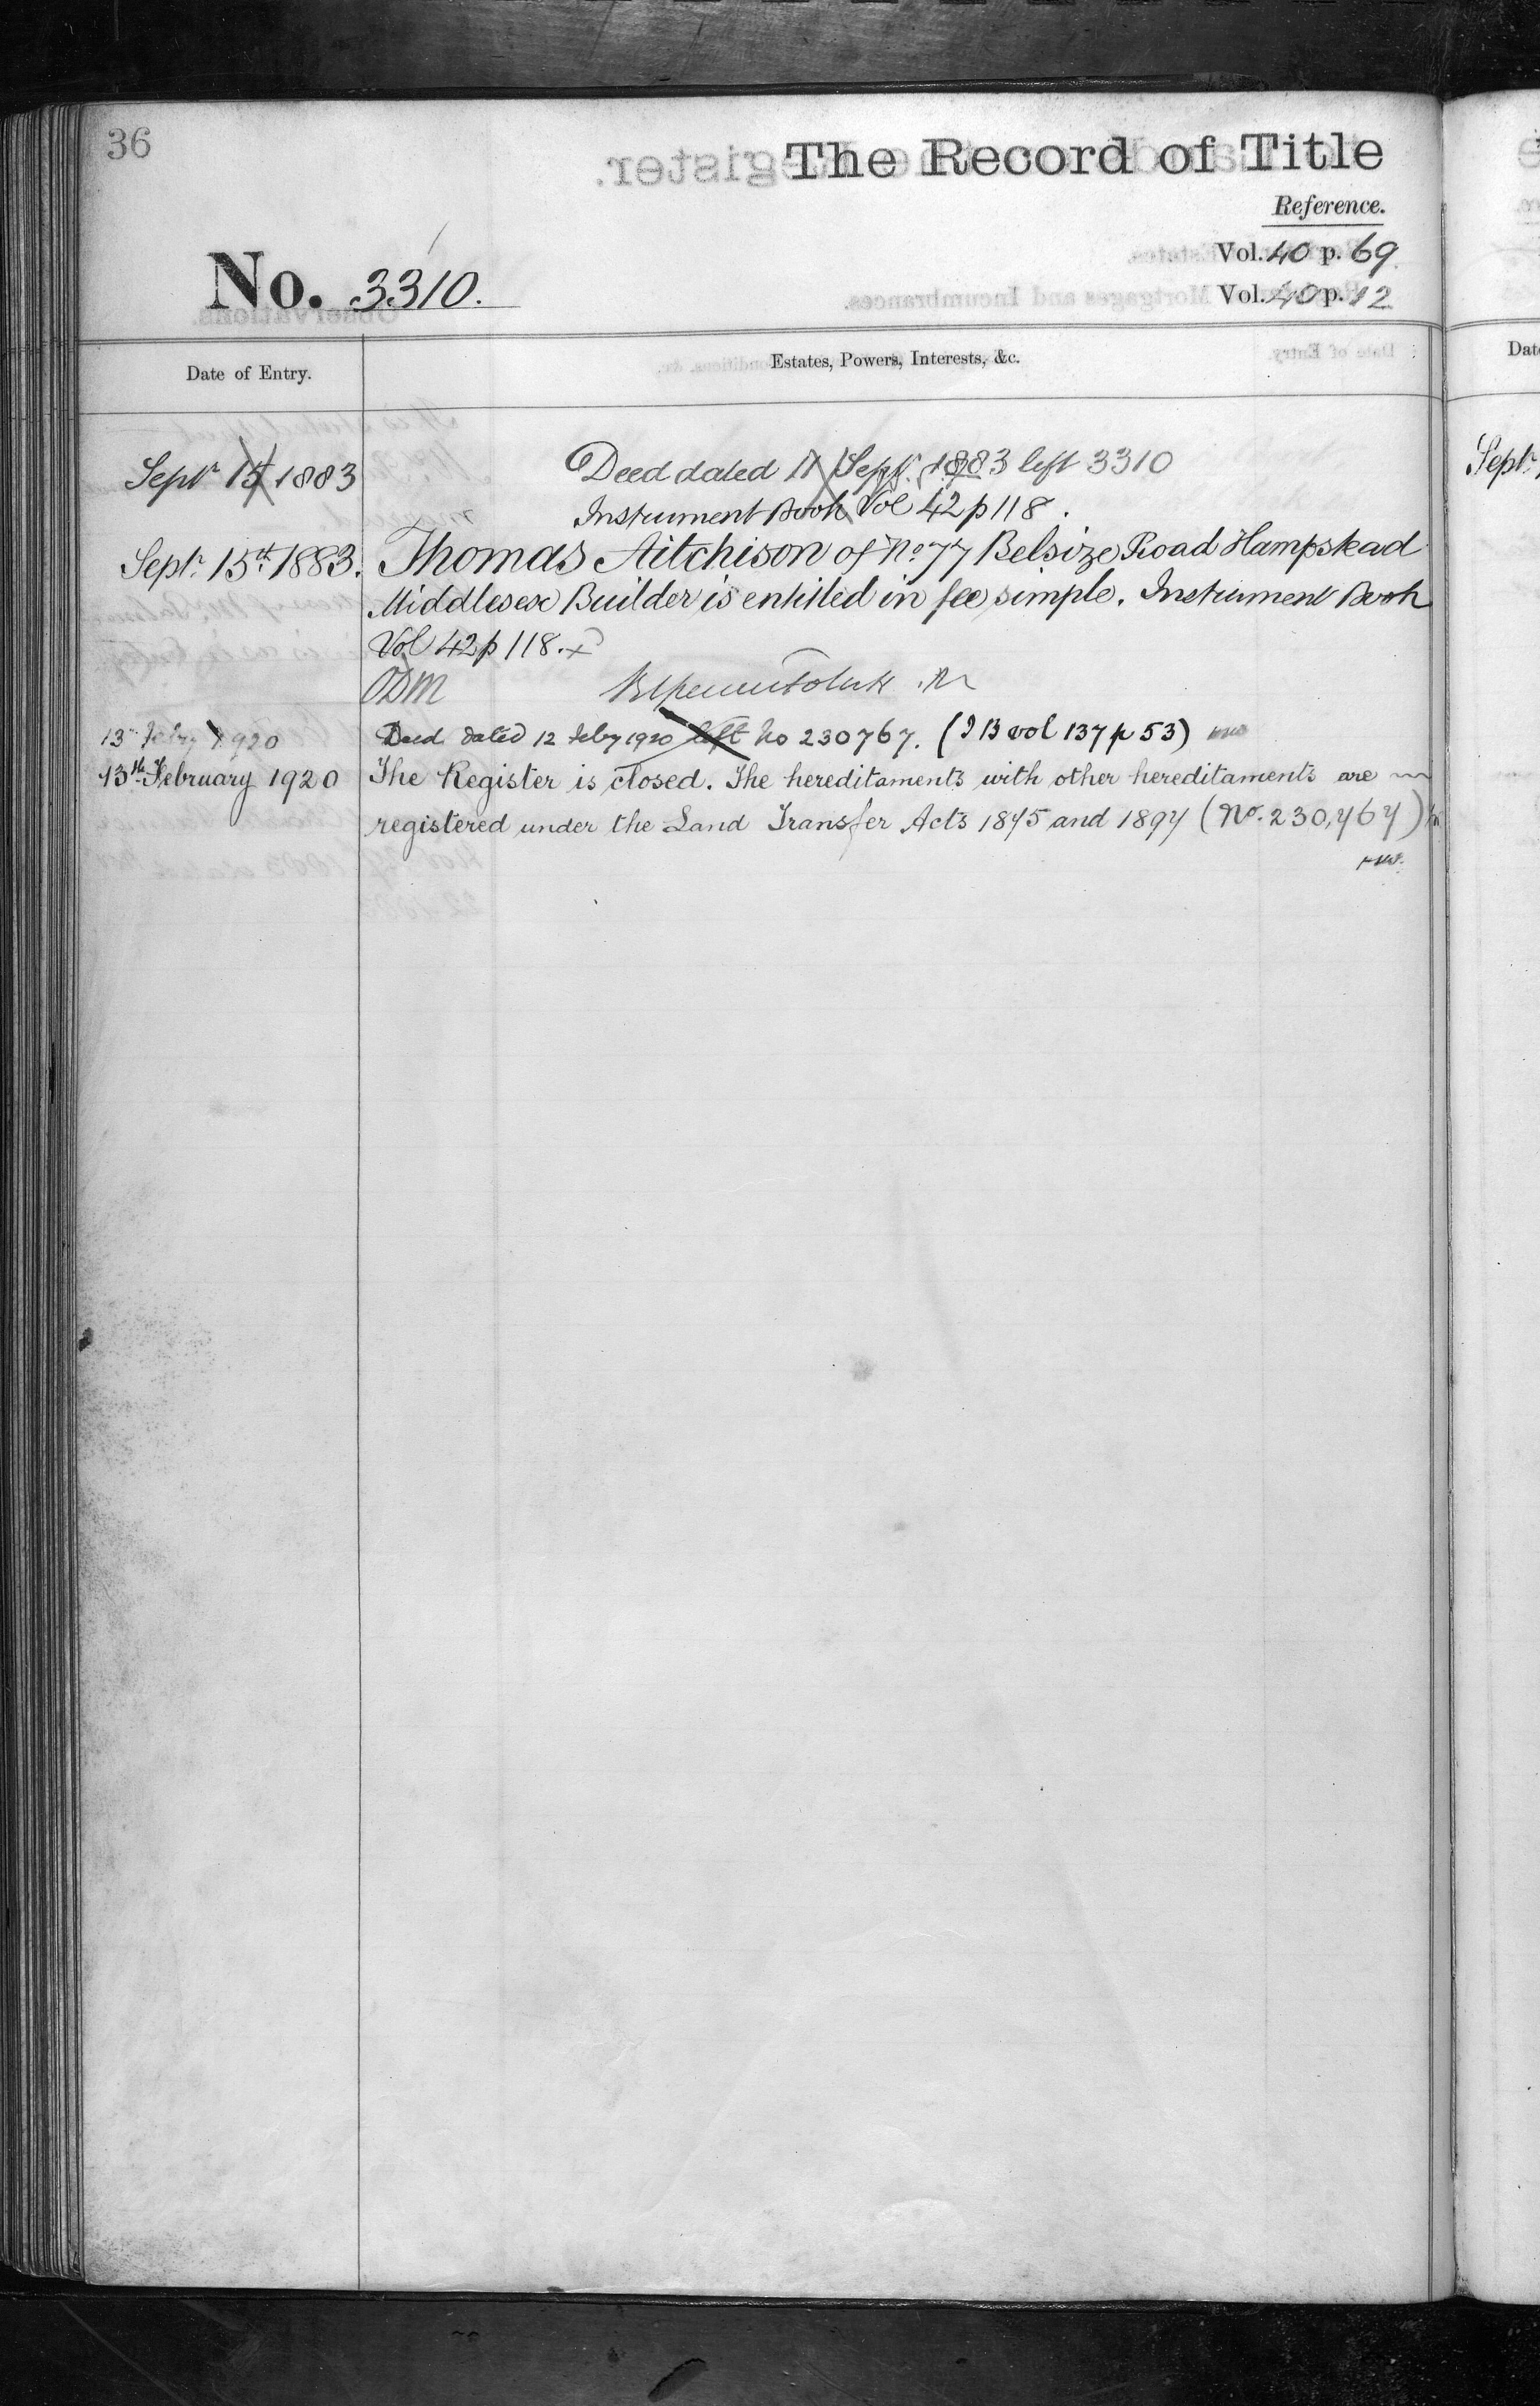 36
The Record of Title
Reference.
Vol. 40 p. 69
No. 3310.
Vol. 40 p. 12
Date of Entry.
Estates, Powers, Interests, &c.
Date
Sept 15 1883
Deed dated 11 Sept. 1883 left 3310
Sept.
Instrument Book Vol 42 p 118.
Sept. 15th 1883.
Thomas Aitchison of No 77 Belsize Road Hampstead
Middlesex Builder is entitled in fee simple. Instrument Book
Vol 42 p 118.
13 Feby 1920
Deed dated 12 Feby 1920 left No 230767. (I B vol 137 p 53)
13th February 1920
The Register is closed. The hereditaments with other hereditaments are
registered under the Land Transfer Acts 1875 and 1897 (No. 230,767)